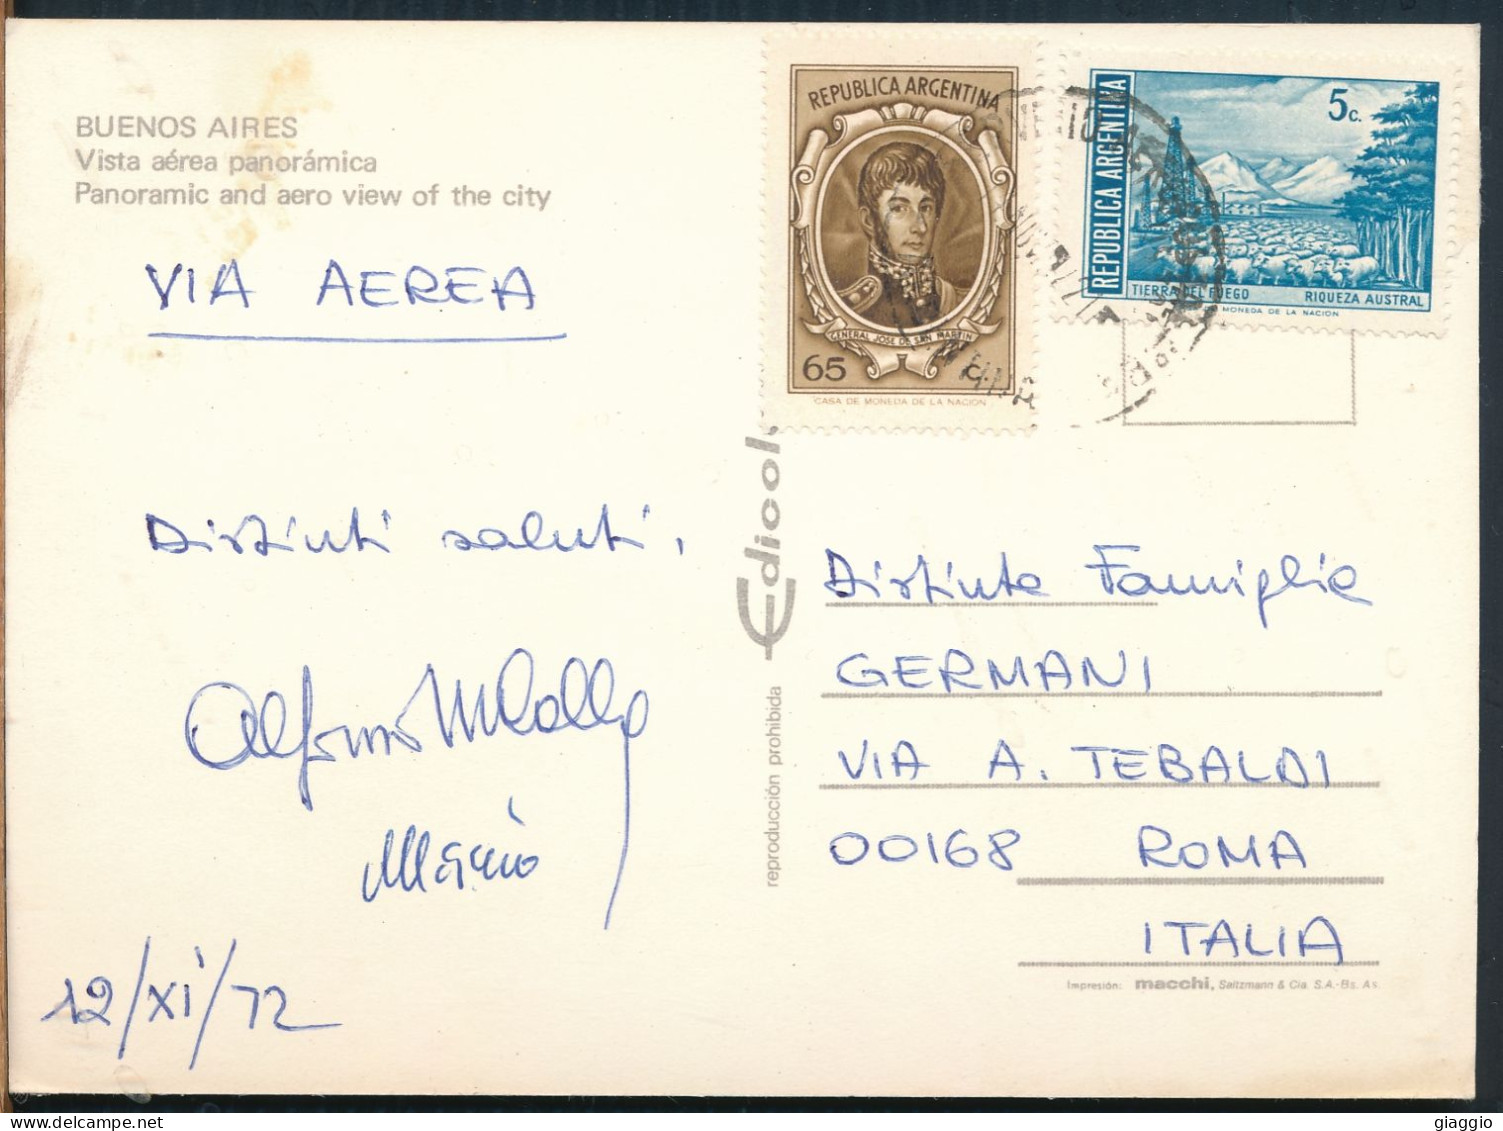 BUENOS AIRES
Vista aérea panorámica
Panoramic and aero view of the city
VIA AEREA
Distinti saluti,
Alfonso
Mario
12/XI/72
REPUBLICA ARGENTINA
GENERAL JOSE DE SAN MARTIN
65 c.
CASA DE MONEDA DE LA NACION
REPUBLICA ARGENTINA
5c.
TIERRA DEL FUEGO RIQUEZA AUSTRAL
MONEDA DE LA NACION
Edicol
reproducción prohibida
Distinta Famiglia
GERMANI
VIA A. TEBALDI
00168 ROMA
ITALIA
Impresión: macchi, Saltzmann & Cia. S.A.-Bs. As.
giaggio